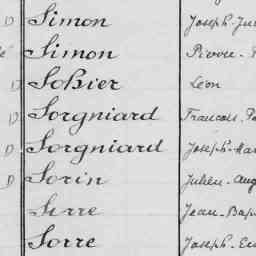 D Simon Joseph-Ju
é Simon Pierre-
Sohier Léon
D Sorgniard Francois-
D Sorgniard Joseph-Mar
D Sorin Julien-Aug
Serre Jean-Bap
Sorre Joseph-Eu